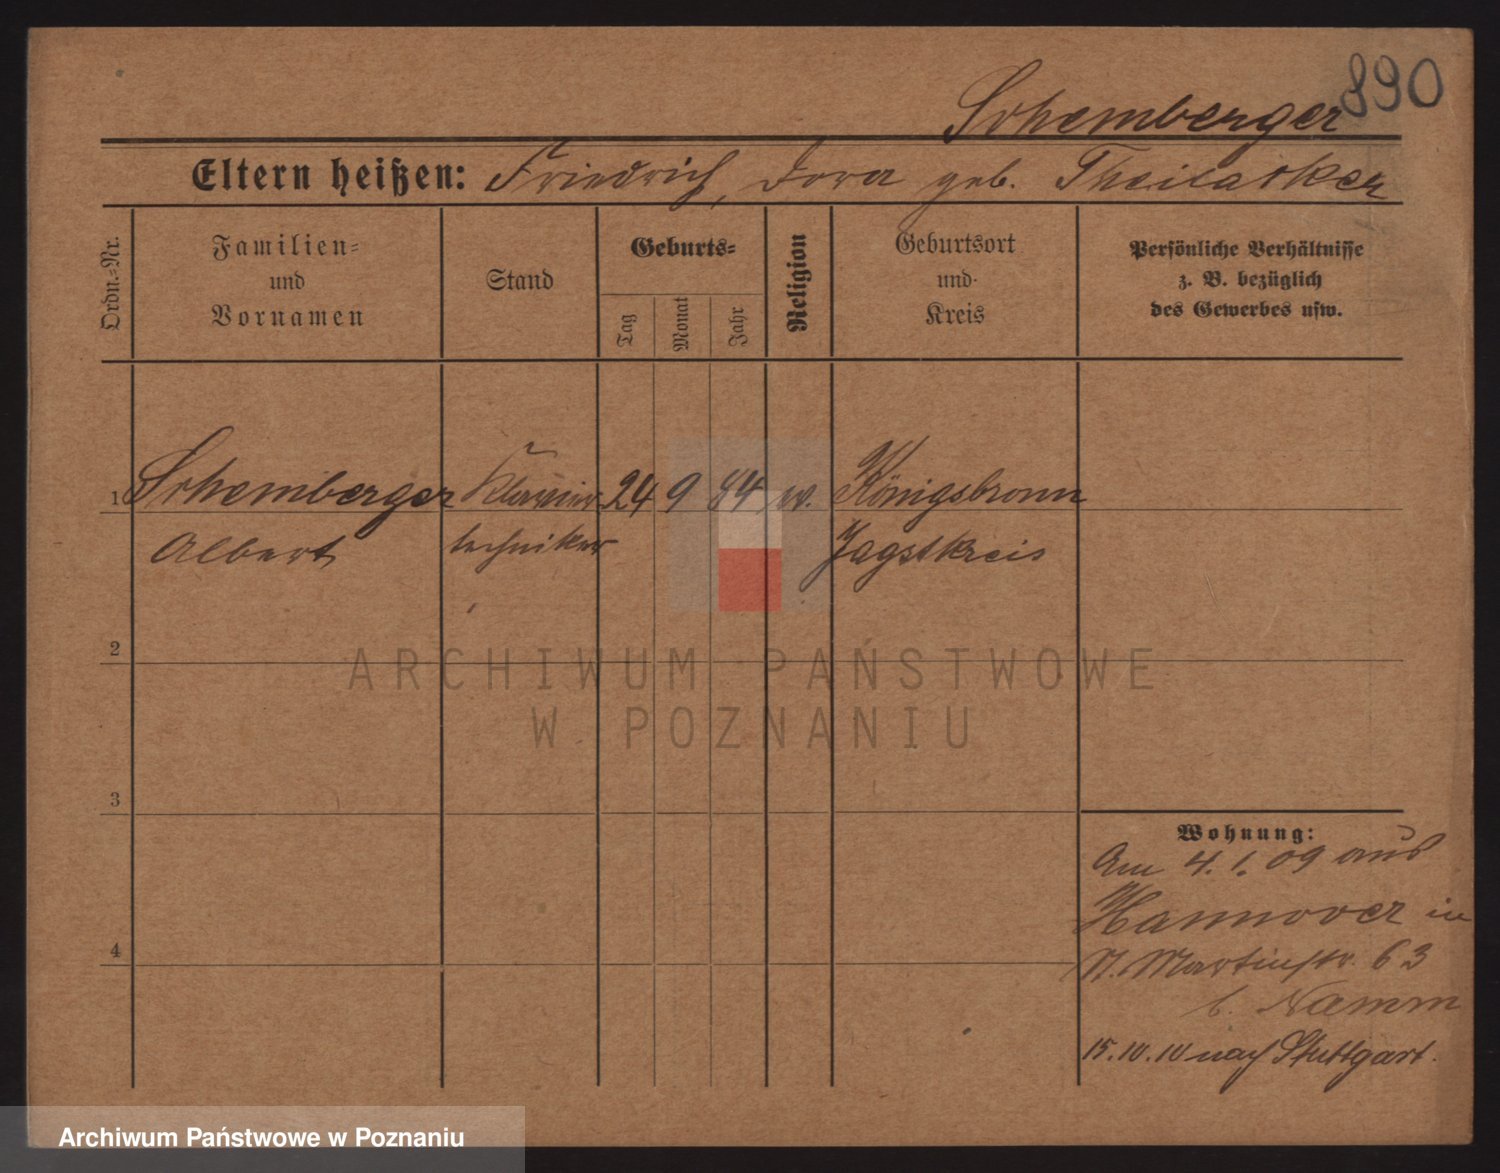 890
Schemberger
Eltern heißen: Friedrich, Dora geb. Theilacker
Ordn.=Nr.
Familien=
und
Vornamen
Stand
Geburts=
Tag
Monat
Jahr
Religion
Geburtsort
und
Kreis
Persönliche Verhältnisse
z. B. bezüglich
des Gewerbes usw.
1 Schemberger Klavier 24 9 84 ev. Königsbronn
Albert techniker Jagstkreis
2
3
4
Wohnung:
Am 4.1.09 aus
Hannover in
St. Martinstr. 63
b.
15.10.10 nach Stuttgart.
ARCHIWUM PAŃSTWOWE
W POZNANIU
Archiwum Państwowe w Poznaniu